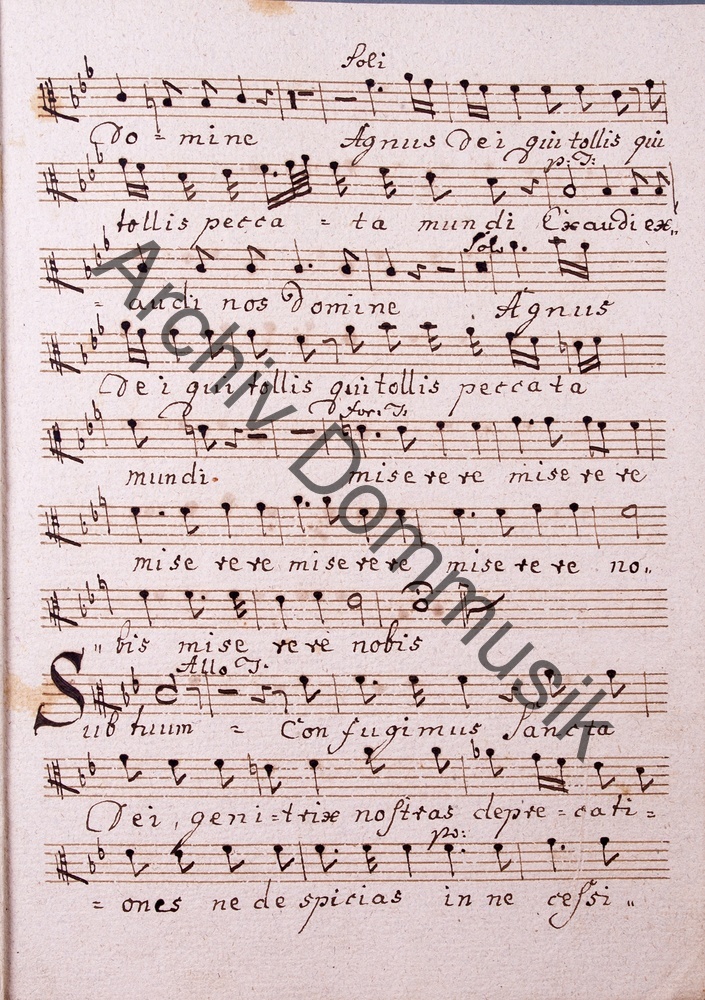 Soli
Do = mine Agnus Dei qui tollis qui
p: T:
tollis pecca = ta mundi Exaudi ex„
Solo
= audi nos Domine Agnus
Dei qui tollis qui tollis peccata
for: T:
mundi. miserere miserere
miserere miserere miserere no„
„bis miserere nobis
Allo T:
Sub tuum = Confugimus Sancta
Dei, geni=trix nostras depre=cati=
po:
= ones ne despicias in necessi„
Archiv Dommusik